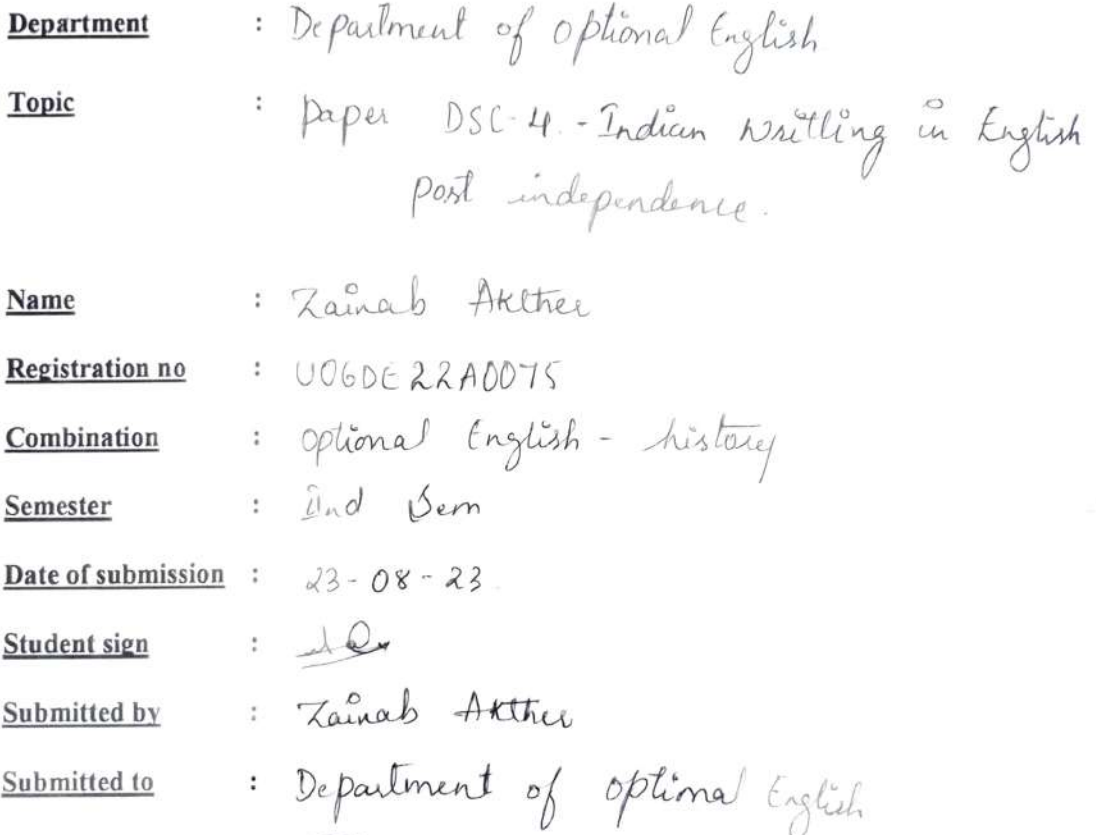 Department : Department of optional English
Topic : paper DSC-4. - Indian writling in English
post independence.
Name : Zainab Akther
Registration no : UO6DE22A0075
Combination : optional English - history
Semester : IInd Sem
Date of submission : 23-08-23
Student sign :
Submitted by : Zainab Akther
Submitted to : Department of optional English